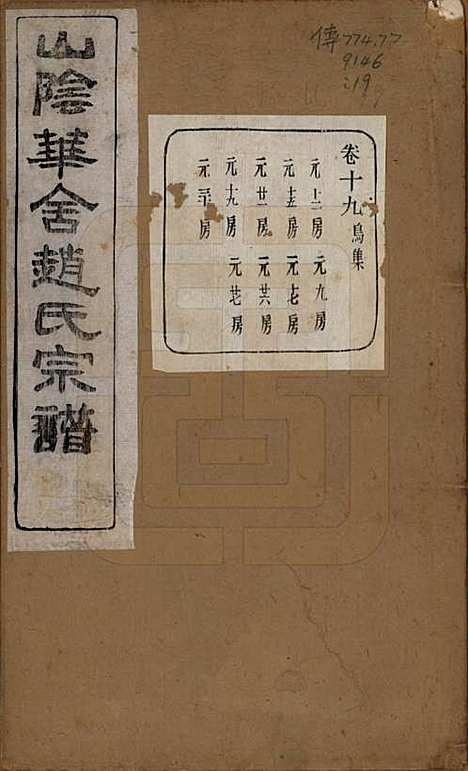 山陰華舍趙氏宗譜
傳774.77
9146
:19
卷十九鳥集
元上二房 元九房
元十五房 元七房
元廿一房 元廿六房
元十九房 元廿房
房